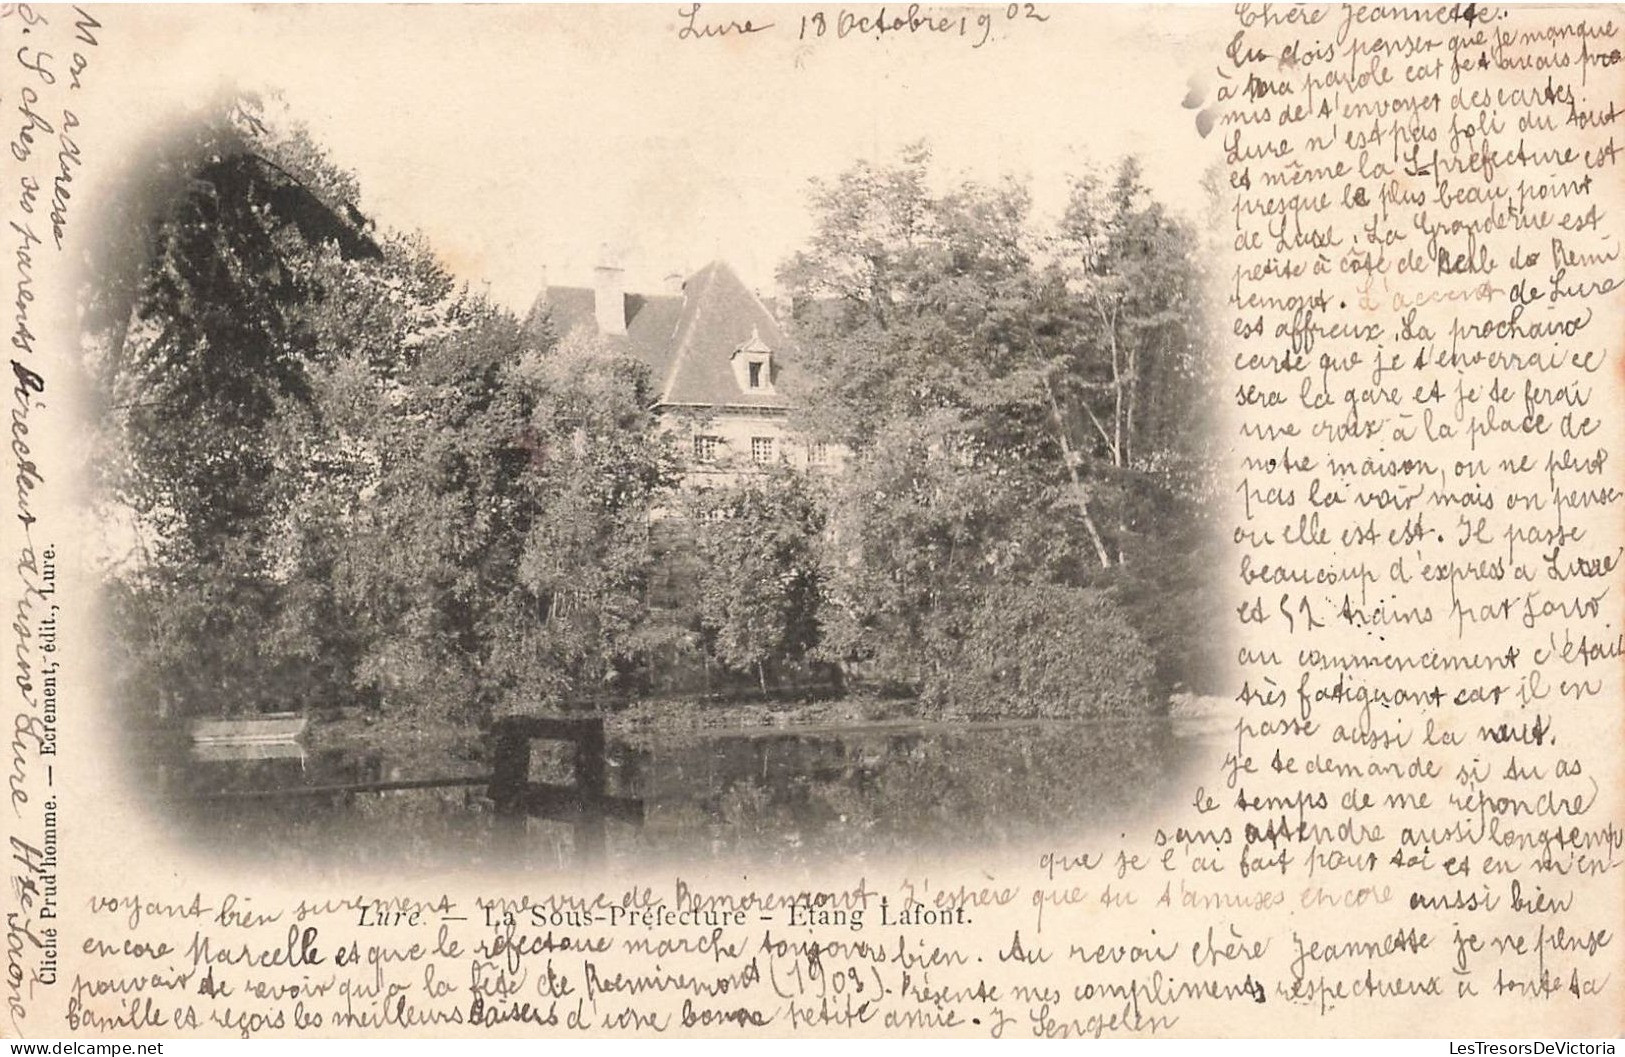 Lure 18 Octobre 1902
Chère Jeannette.
Tu dois penser que je manque
à ma parole car je t'avais pro
mis de t'envoyer des cartes.
Lure n'est pas joli du tout
et même la S-préfecture est
presque le plus beau point
de Lure. La Grande rue est
petite à côté de celle de Remi
remont. L'accent de Lure
est affreux. La prochaine
carte que je t'enverrai ce
sera la gare et je te ferai
une croix à la place de
notre maison, on ne peut
pas la voir mais on pense
ou elle est est. Il passe
beaucoup d'express a Lure
et 52 trains par jour
au commencement c'était
très fatiguant car il en
passe aussi la nuit.
Je te demande si tu as
le temps de me répondre
sans attendre aussi longtemp
que je l'ai fait pour toi et en m'en-
voyant bien surement une vue de Remiremont. J'espère que tu t'amuses encore aussi bien
Lure. — La Sous-Préfecture - Etang Lafont.
encore Marcelle et que le réfectoire marche toujours bien. Au revoir chère Jeannette je ne pense
pouvoir te revoir qu'a la fête de Remiremont (1903). Présente mes compliments respectueux à toute ta
famille et reçois les meilleurs baisers d'une bonne petite amie. J Sengelen
Mon adresse
J. S chez ses parents Directeur d'usine Lure Hte Saône
Cliché Prud'homme. — Ecrement, édit., Lure.
LesTresorsDeVictoria